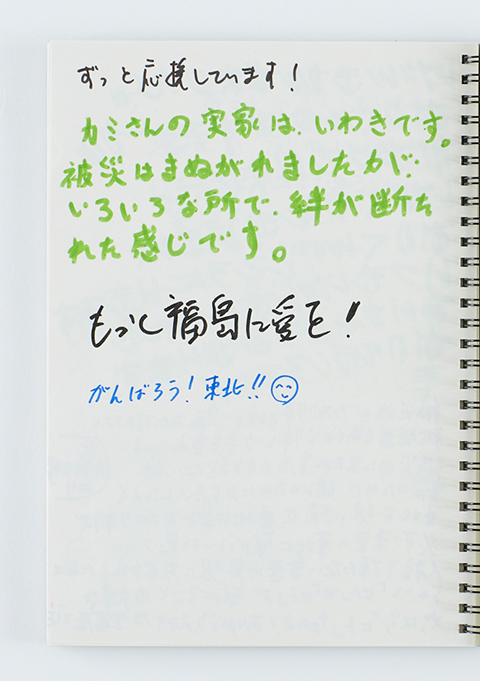 ずっと応援しています!
カミさんの実家は、いわきです。
被災はまぬがれましたが、
いろいろな所で、絆が断た
れた感じです。
もっと福島に愛を!
がんばろう!東北!!